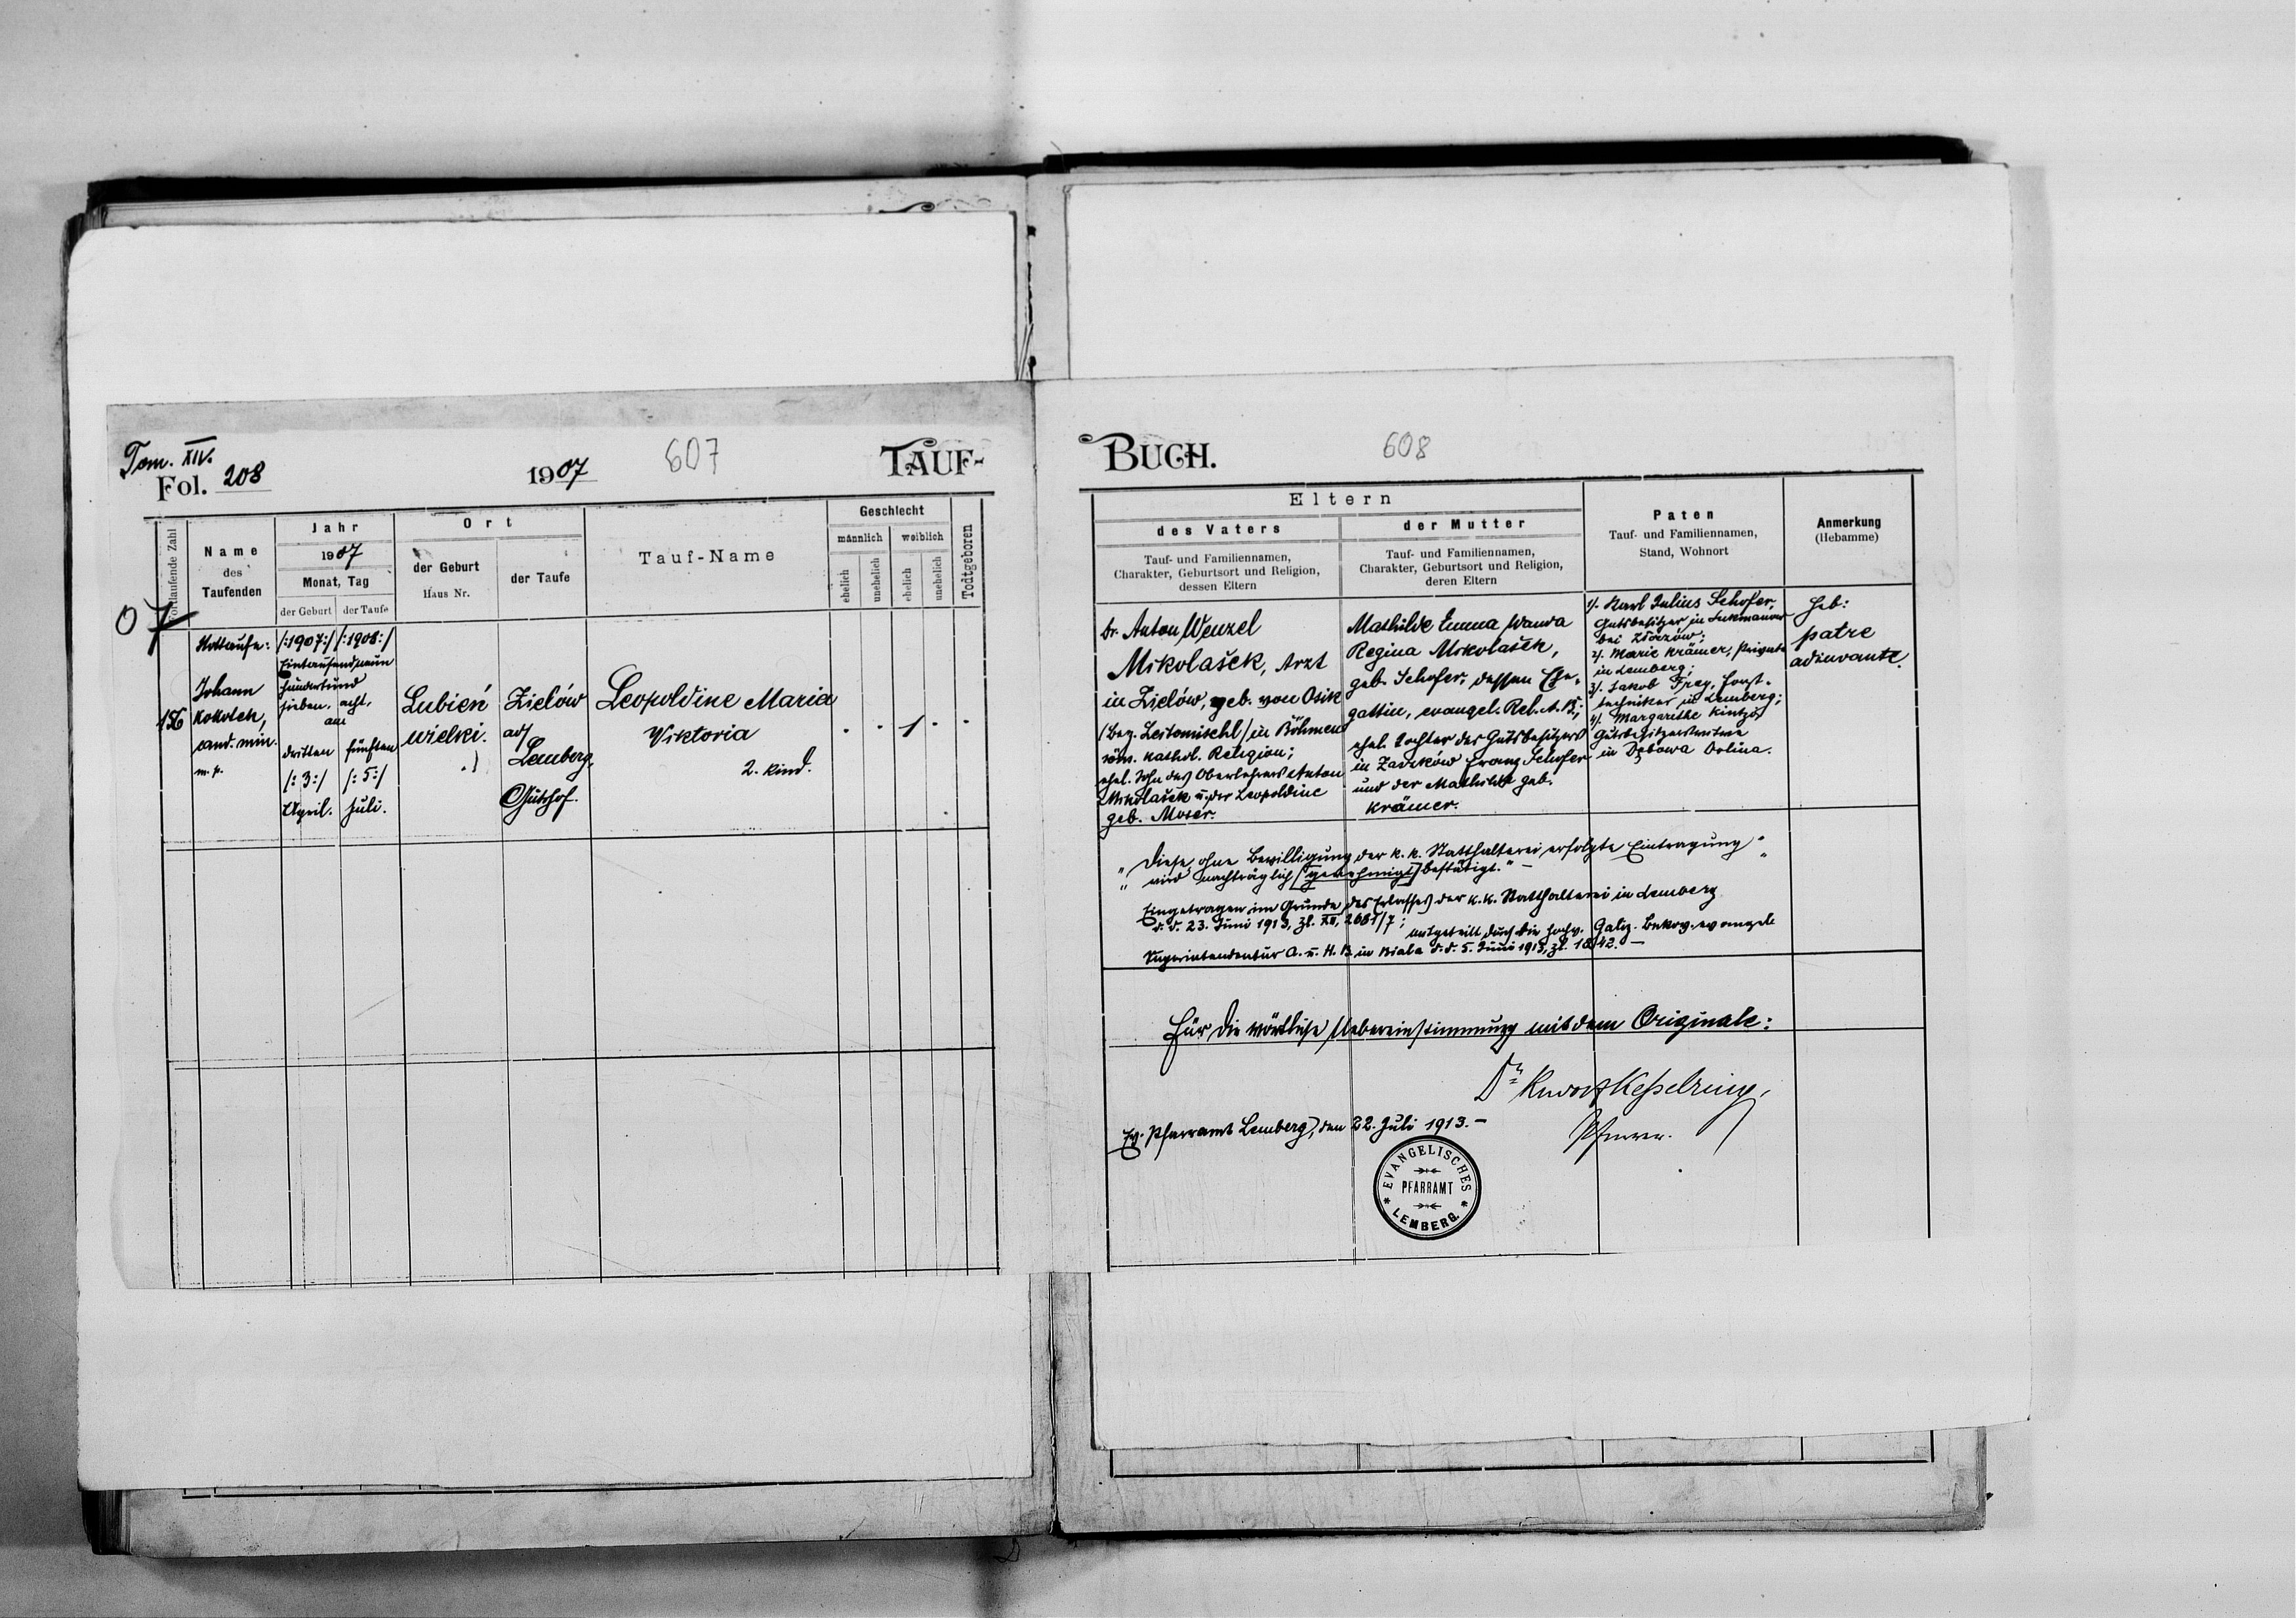 Tom. XIV.
Fol. 208
1907
607
TAUF-
fortlaufende Zahl
Name
des
Taufenden
Jahr
1907
Monat, Tag
der Geburt
der Taufe
Ort
der Geburt
Haus Nr.
der Taufe
Tauf-Name
Geschlecht
männlich
weiblich
ehelich
unehelich
ehelich
unehelich
Todtgeboren
07
Nottaufe:
156
Johann
Kokotek,
cand. min.
m. p.
/:1907:/ /:1908:/
Eintausendneun
hundertund
sieben, acht,
am
dritten fünften
/:3:/ /:5:/
April. Juli.
Lubień
wielki.
Zielów
ad
Lemberg,
Gutshof.
Leopoldine Maria
Viktoria
2. Kind.
. . 1 . .
BUCH.
608
Eltern
des Vaters
Tauf- und Familiennamen,
Charakter, Geburtsort und Religion,
dessen Eltern
der Mutter
Tauf- und Familiennamen,
Charakter, Geburtsort und Religion,
deren Eltern
Paten
Tauf- und Familiennamen,
Stand, Wohnort
Anmerkung
(Hebamme)
Dr. Anton Wenzel
Mikolašek, Arzt
in Zielów, geb. von Osik
(Bez. Leitomischl) in Böhmen
röm. kathol. Religion;
ehel. Sohn des Oberlehrers Anton
Mikolašek u. der Leopoldine
geb. Moser.
Mathilde Emma Wanda
Regina Mikolašek,
geb. Schofer, dessen Ehe-
gattin, evangel. Rel. A. B.;
ehel. Tochter des Gutsbesitzers
in Zaszków Franz Schofer
und der Mathilde geb.
Krämer.
1/. Karl Julius Schofer,
Gutsbesitzer in
bei Złoczów;
2/. Marie Krämer, Private
in Lemberg;
3/. Jakob Frey, Forst-
techniker in Lemberg;
4/. Margarethe Kintzi,
Gutsbesitzerswitwe
in Dębowa Dolina.
Heb:
patre
adiuvante.
"Diese ohne Bewilligung der k. k. Statthalterei erfolgte Eintragung"
"wird nachträglich [genehmigt] bestätigt." –
Eingetragen im Grunde des Erlasses der k. k. Statthalterei in Lemberg
d. d. 23. Juni 1913, Zl. XII, 2681/7; mitgeteilt durch die hochw. Galiz. Bukow. evangel.
Superintendentur A. u. H. B. in Biala d. d. 5. Juni 1913, Zl. 1842. –
Für die wörtliche Uebereinstimmung mit dem Originale:
Dr. Kesselring,
Pfarrer.
Ev. Pfarramt Lemberg, den 22. Juli 1913. –
EVANGELISCHES
PFARRAMT
LEMBERG.